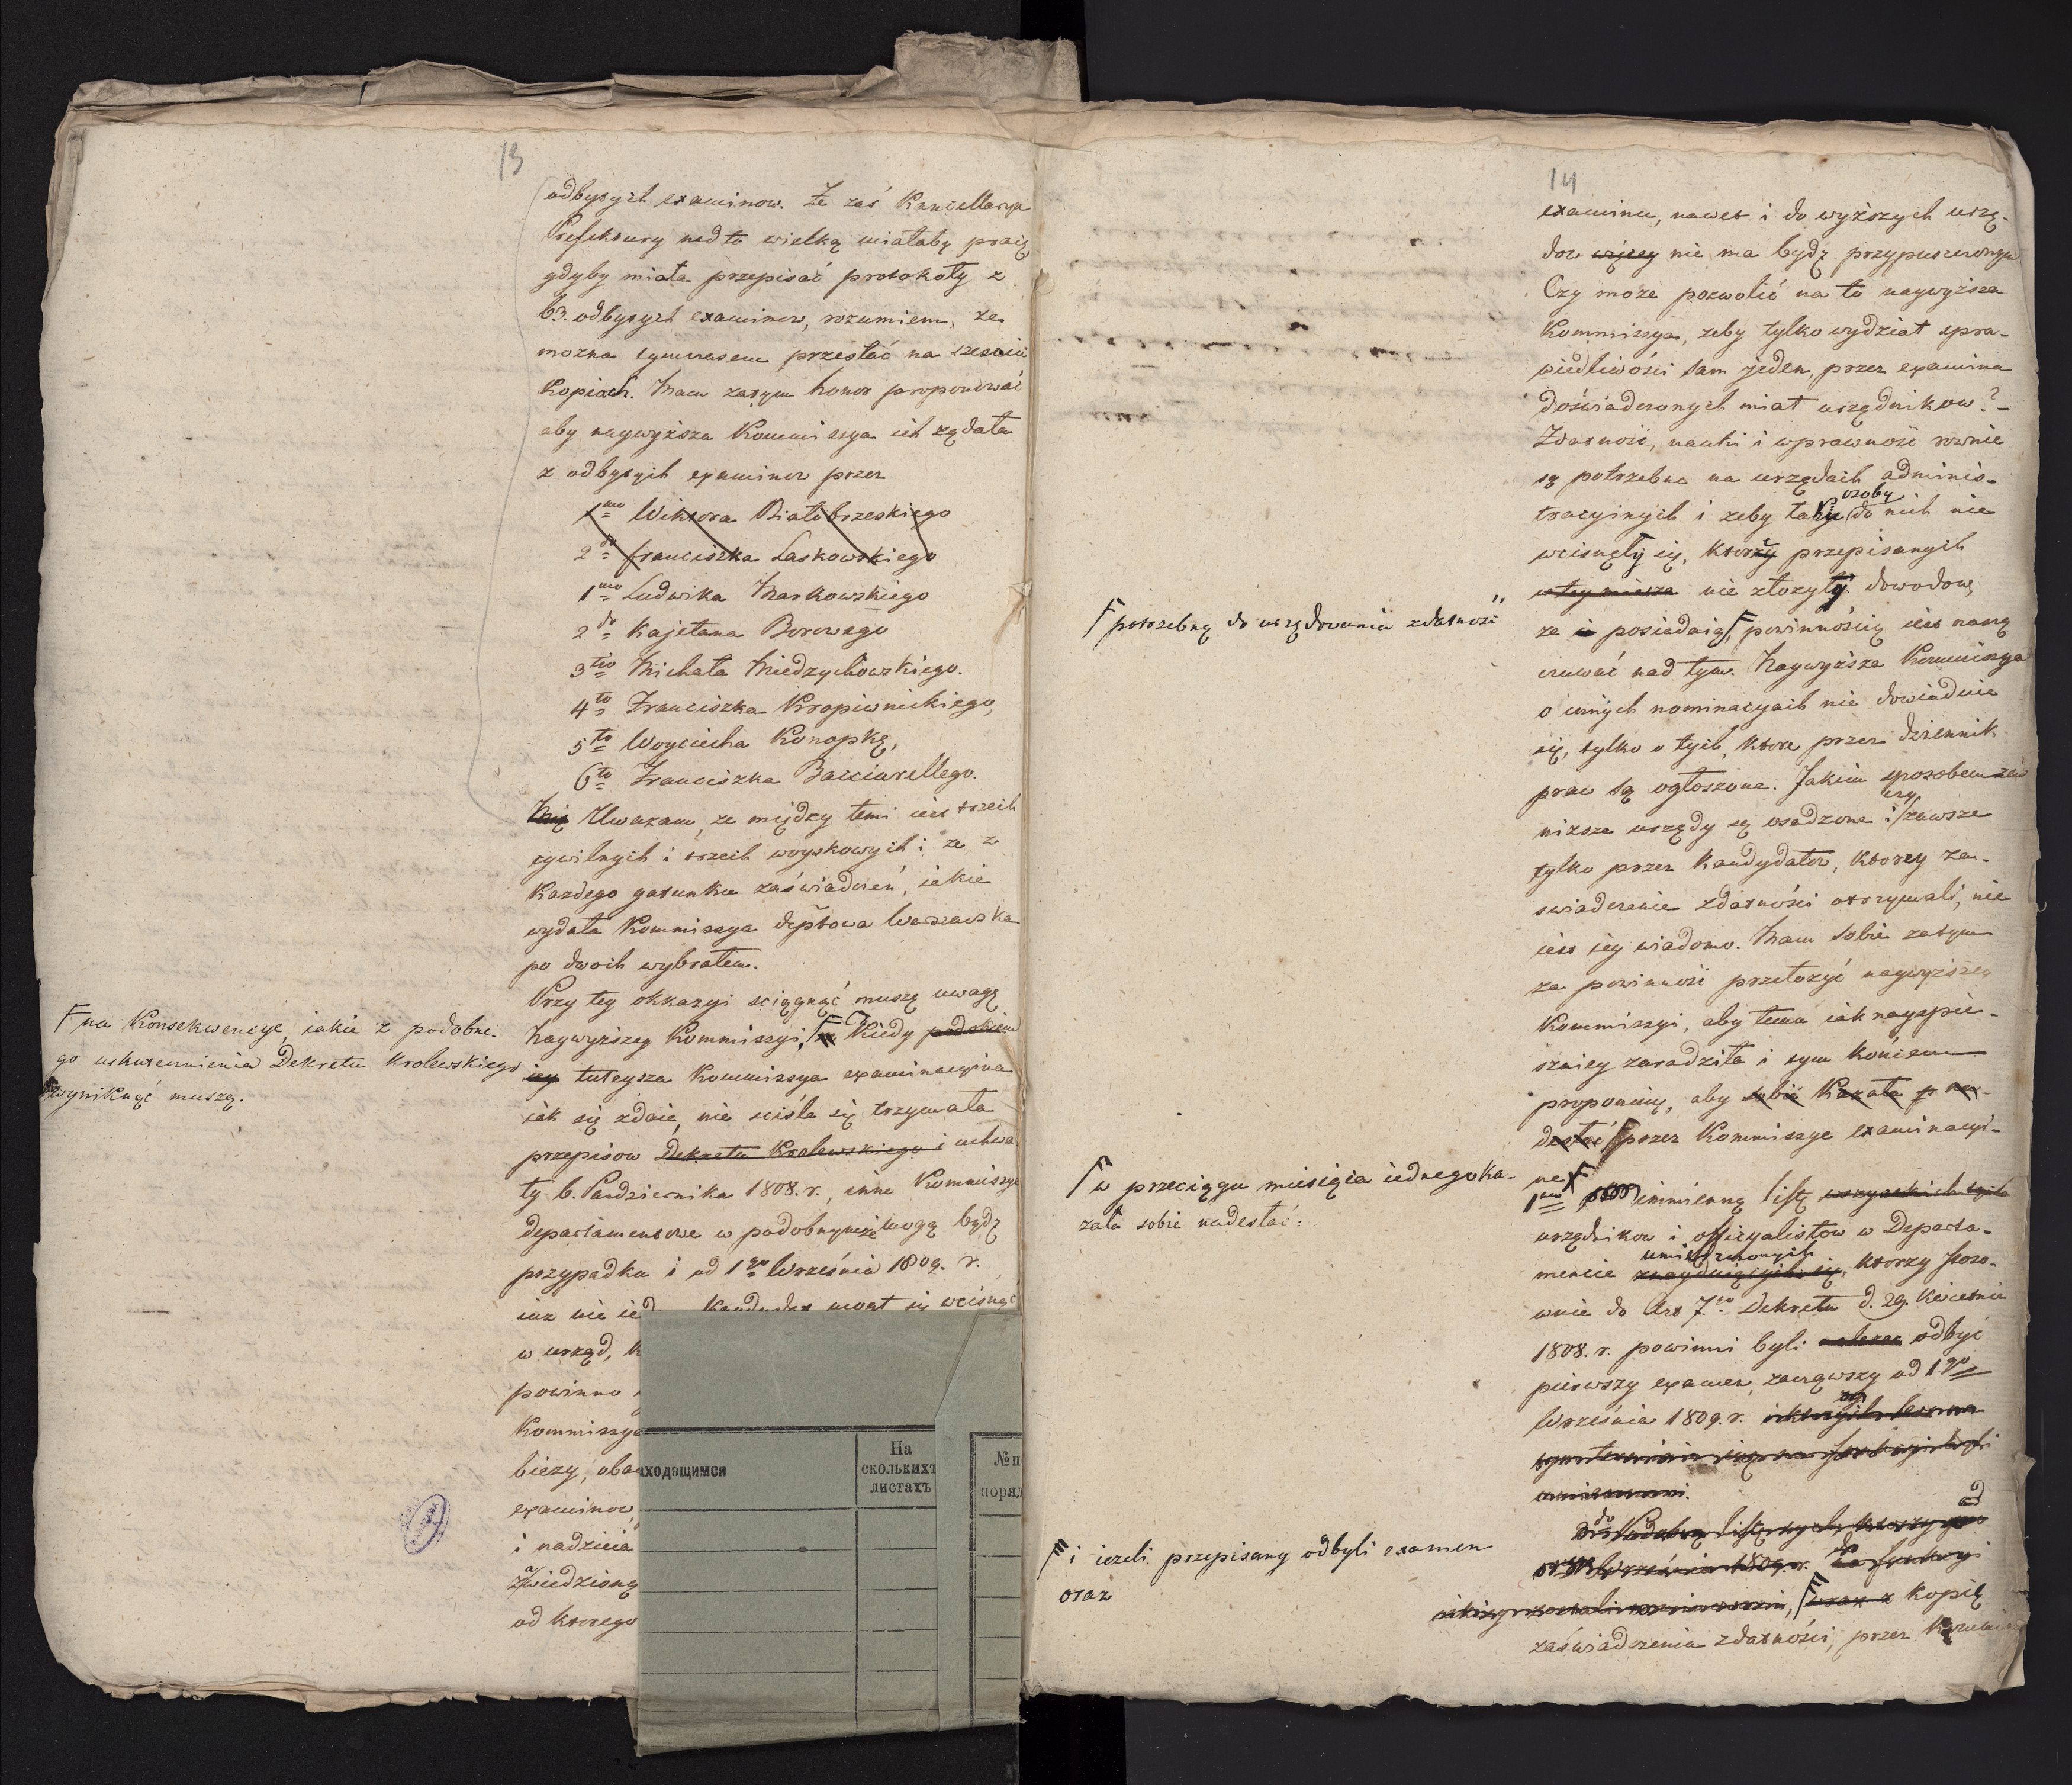 13
odbytych examinow. Że zaś Kancellarya
Prefektury nad to wielką miałaby pracę,
gdyby miała przepisać protokoły z
63. odbytych examinow, rozumiem, że
można tymczasem przestać na sześciu
kopiach. Mam zatym honor proponować
aby naywyższa Kommissya ich żądała
z odbytych examinow przez
1mo Wiktora Białobrzeskiego
2do Franciszka Laskowskiego
1mo Ludwika Markowskiego
2do Kajetana Borowego
3tio Michała Miedzychowskiego.
4to Franciszka Kropiwnickiego,
5to Woyciecha Konopkę,
6to Franciszka Bacciarellego.
Uważam, że między temi iest trzech
cywilnych i trzech woyskowych i że z
każdego gatunku zaświadczeń, iakie
wydała Kommissya deptowa Warszawska
po dwoch wybrałem.
Przy tey okkazyi sciągnąć muszę uwagę
Naywyższey Kommissyi, Kiedy
iey tuteysza Kommissya examinacyina
iak się zdaie, nie sciśle się trzymała
przepisow Dekretu Krolewskiego i uchwa
ły 6. Pazdziernika 1808. r., inne Kommissye
departamentowe w podobnymże mogą bydź
przypadku i od 1go Września 1809. r.
iuż nie ied Kandydat mogł się wcisnąć
w urząd, k
powinno
Kommissya
bieży, oba
examinow,
i nadzieia
zwiedzioną
od ktorego
na Konsekwencye, iakie z podobne-
go uskutecznienia Dekretu Krolewskiego
wyniknąć muszą.
ходящимся
На
сколькихъ
листахъ
№ п
поряд
14
examinu, nawet i do wyższych urzę-
dow więcey nie ma bydź przypuszczonym
Czy może pozwolić na to naywyższa
Kommissya, żeby tylko wydział spra-
wiedliwości sam jeden przez examina
doświadczonych miał urzędnikow? -
Zdatność, nauki i wprawność rownie
są potrzebne na urzędach adminis-
osoby
tracyinych i żeby takie do nich nie
wcisnęły się, ktore przepisanych
nie złożyły dowodow,
że posiadaią, powinnością iest naszą
czuwać nad tym. Naywyższa Kommissya
o innych nominacyach nie dowiaduie
się, tylko o tych, ktore przez dziennik
praw są ogłoszone. Jakim sposobem zaś
czy
niższe urzędy są osadzone i zawsze
tylko przez kandydatow, ktorzy za-
swiadczenie zdatności otrzymali, nie
iest iey wiadomo. Mam sobie zatym
za powinność przełożyć naywyższey
Kommissyi, aby temu iak nayspie-
szniey zaradziła i tym końcem
proponuię, aby sobie kazała p na-
desłać przez Kommissye examinacyi-
ne
1mo imienną listę wszystkich tych
urzędnikow i officyalistow w Departa-
umieszczonych
mencie znayduiących się, ktorzy stoso-
wnie do Art 7go Dekretu d. 29. Kwietnia
1808. r. powinni byli odbyć
pierwszy examen, zacząwszy od 1go
Września 1809. r.
kopią
zaświadczenia zdatności, przez
potrzebną do urzędowania zdatność
w przeciągu miesiąca iednego ka-
zała sobie nadesłać:
i ieżeli przepisany odbyli examen
oraz